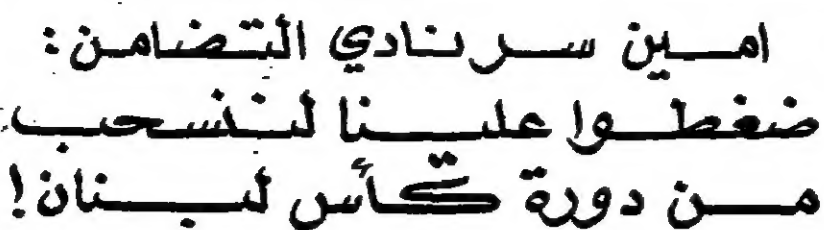 امين سر نادي التضامن:
ضغطوا علينا لننسحب
من دورة كأس لبنان!